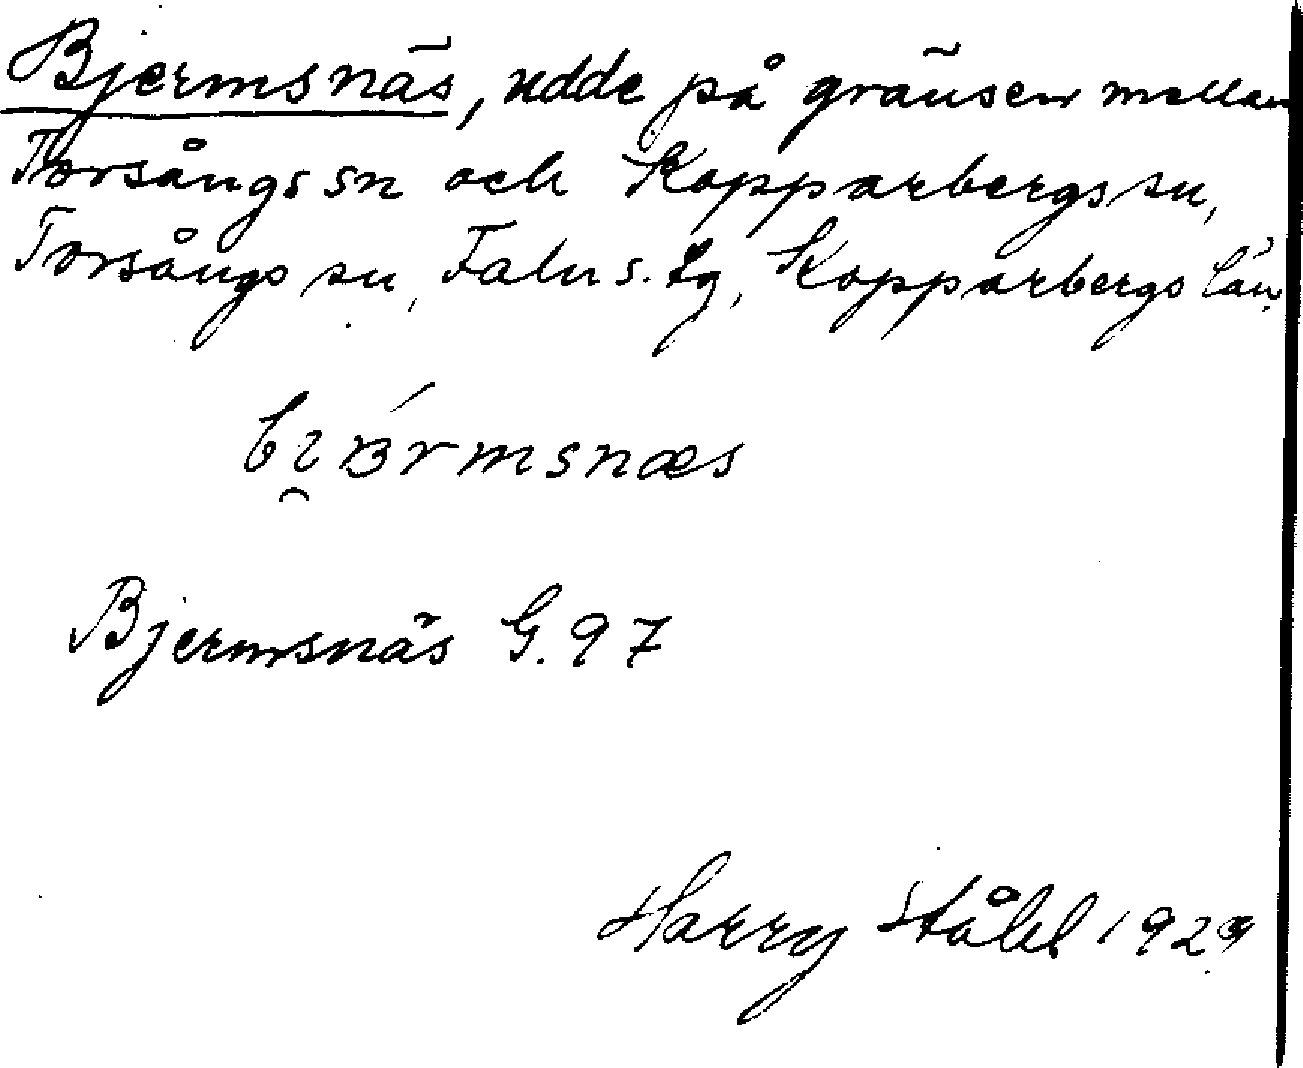 Bjermsnäs, udde på gränsen mellan
Torsångs sn och Kopparbergs sn,
Torsångs sn, Falu s. tg, Kopparbergs län.
Bjermsnäs G. 97
Harry Ståhl 1929